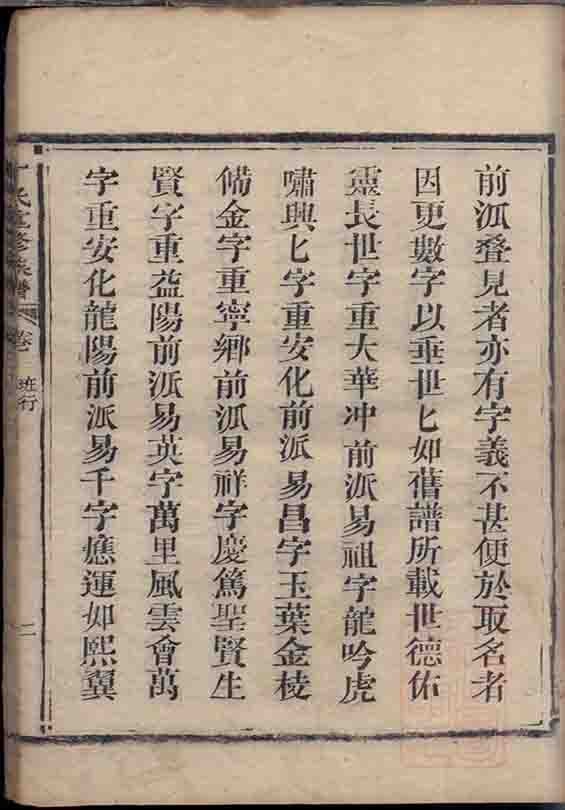 前泒叠見者亦有字義不甚便於取名者
因更數字以垂世匕如舊譜所載世德佑
靈長世字重大華冲前派易祖字龍吟虎
嘯興匕字重安化前派易昌字玉葉金棱
備金字重寧鄉前泒易祥字慶篤聖賢生
賢字重益陽前派易英字萬里風雲會萬
字重安化龍陽前派易千字應運如熙翼
氏重修族譜
卷
班行
二